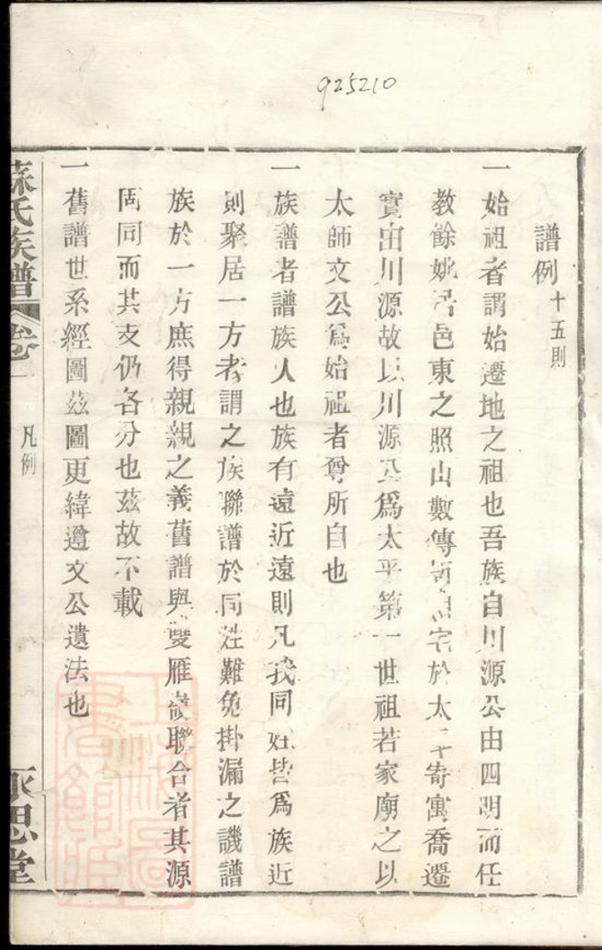 925210
譜例十五則
一始祖者謂始遷地之祖也吾族自川源公由四明而任
教餘姚居邑東之照山數傳 宅於太平寄寓喬遷
實由川源故以川源公爲太平第一世祖若家廟之以
太師文公爲始祖者尊所自也
一族譜者譜族人也族有遠近遠則凡我同姓皆爲族近
則聚居一方者謂之族聯譜於同姓難免掛漏之譏譜
族於一方庶得親親之義舊譜與雙雁 聯合者其源
固同而其支仍各分也茲故不載
一舊譜世系經圖茲圖更緯遵文公遺法也
蘇氏族譜
卷一
凡例
永思堂